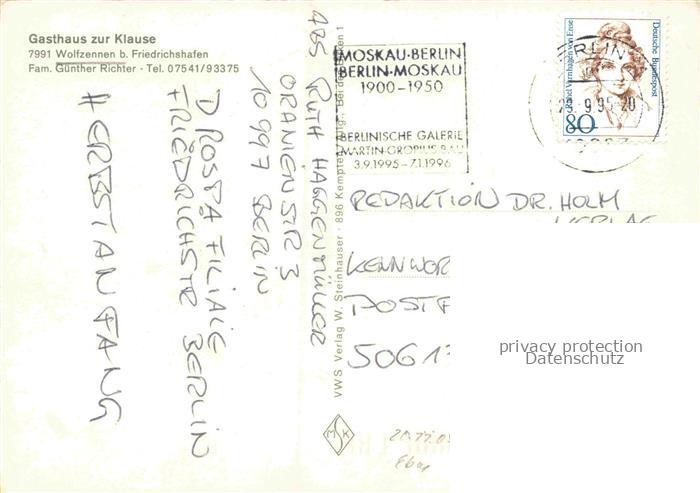 Gasthaus zur Klause
7991 Wolfzennen b. Friedrichshafen
Fam. Günther Richter - Tel. 07541/93375
ABS RUTH HAGGENMÜLLER
ORANIENSTR 3
10997 BERLIN
DROSPA FILIALE
FRIEDRICHSTR BERLIN
HERBSTANFANG
VWS Verlag W. Steinhauser · 896 Kempten
MSK
MOSKAU-BERLIN
BERLIN-MOSKAU
1900-1950
BERLINISCHE GALERIE
MARTIN-GROPIUS-BAU
3.9.1995-7.1.1996
BERLIN
9.95-20
Deutsche Bundespost
Rahel Varnhagen von Ense
80
REDAKTION DR. HOLM
VERLAG
KENNWOR
POSTF
5061
privacy protection
Datenschutz